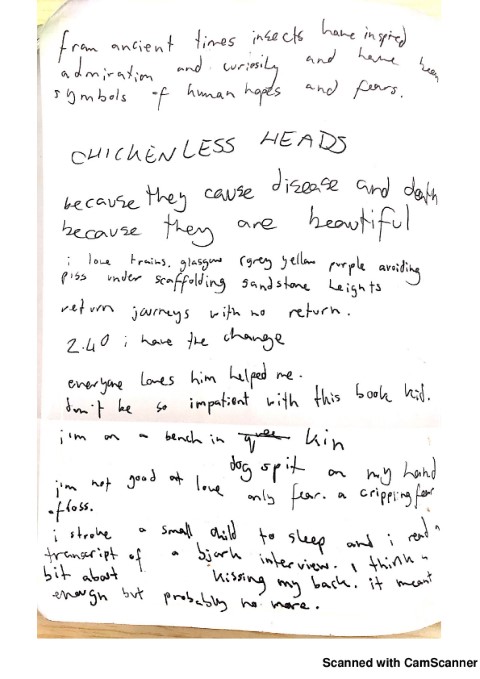 from ancient times insects have inspired
admiration and curiosity and have been
symbols of human hopes and fears.
CHICKENLESS HEADS
because they cause disease and death
because they are beautiful
i love trains. glasgow grey yellow purple avoiding
piss under scaffolding sandstone heights
return journeys with no return.
2.40 i have the change
everyone loves him helped me.
don't be so impatient with this book kid.
i'm on a bench in kin
dog spit on my hand
i'm not good at love only fear. a crippling fear
of loss.
i stroke a small child to sleep and i read a
transcript of a bjork interview. i think a
bit about kissing my back. it meant
enough but probably no more.
Scanned with CamScanner